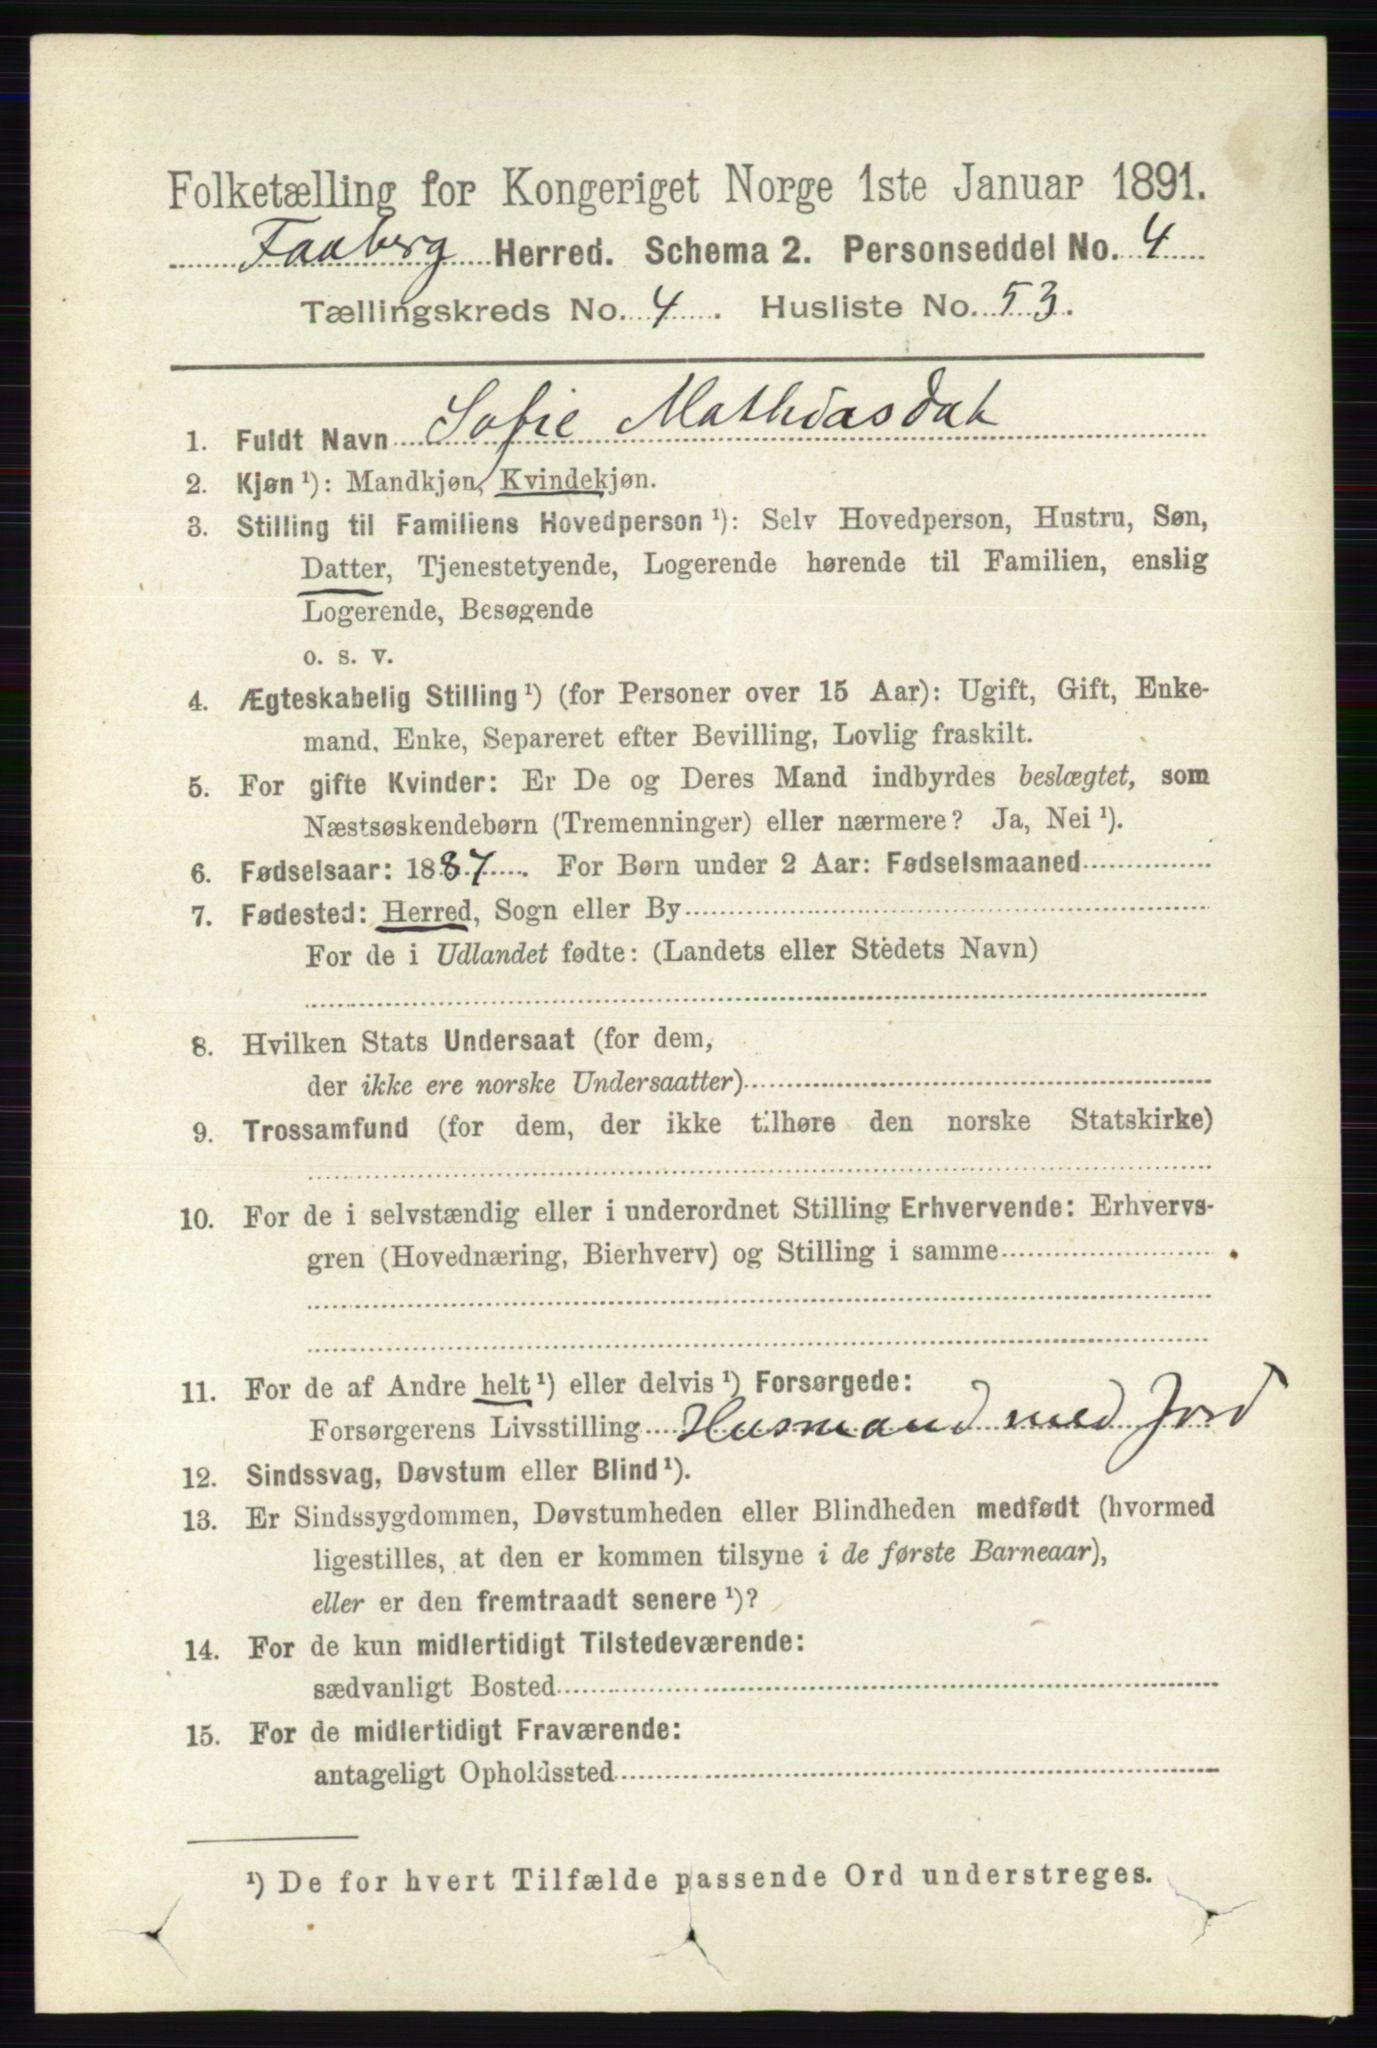 Folketælling for Kongeriget Norge 1ste Januar 1891.
Faaberg Herred. Schema 2. Personseddel No. 4
Tællingskreds No. 4. Husliste No. 53.
1. Fuldt Navn Sofie Mathiasdat
2. Kjøn ¹): Mandkjøn, Kvindekjøn.
3. Stilling til Familiens Hovedperson ¹): Selv Hovedperson, Hustru, Søn,
Datter, Tjenestetyende, Logerende hørende til Familien, enslig
Logerende, Besøgende
o. s. v.
4. Ægteskabelig Stilling ¹) (for Personer over 15 Aar): Ugift, Gift, Enke-
mand, Enke, Separeret efter Bevilling, Lovlig fraskilt.
5. For gifte Kvinder: Er De og Deres Mand indbyrdes beslægtet, som
Næstsøskendebørn (Tremenninger) eller nærmere? Ja, Nei ¹).
6. Fødselsaar: 1887. For Børn under 2 Aar: Fødselsmaaned
7. Fødested: Herred, Sogn eller By
For de i Udlandet fødte: (Landets eller Stedets Navn)
8. Hvilken Stats Undersaat (for dem,
der ikke ere norske Undersaatter)
9. Trossamfund (for dem, der ikke tilhøre den norske Statskirke)
10. For de i selvstændig eller i underordnet Stilling Erhvervende: Erhvervs-
gren (Hovednæring, Bierhverv) og Stilling i samme
11. For de af Andre helt ¹) eller delvis ¹) Forsørgede:
Forsørgerens Livsstilling Husmand med Jord
12. Sindssvag, Døvstum eller Blind ¹).
13. Er Sindssygdommen, Døvstumheden eller Blindheden medfødt (hvormed
ligestilles, at den er kommen tilsyne i de første Barneaar),
eller er den fremtraadt senere ¹)?
14. For de kun midlertidigt Tilstedeværende:
sædvanligt Bosted
15. For de midlertidigt Fraværende:
antageligt Opholdssted
¹) De for hvert Tilfælde passende Ord understreges.